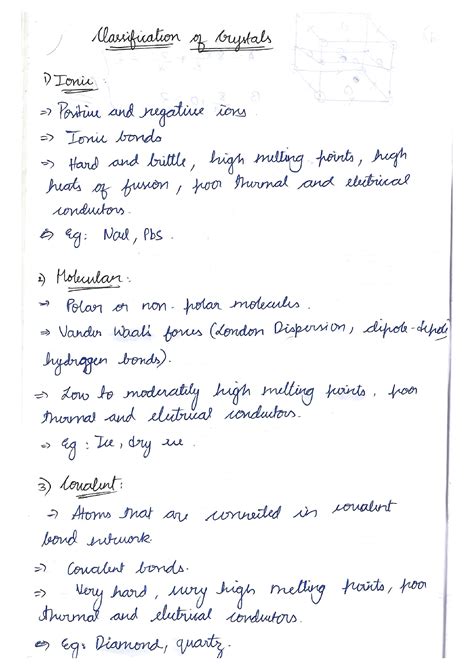 Classification of Crystals
1) Ionic :
⇒ Positive and negative ions
⇒ Ionic bonds
⇒ Hard and brittle, high melting points, high
heats of fusion, poor thermal and electrical
conductors.
⇒ Eg: NaCl, PbS.
2) Molecular:
⇒ Polar or non-polar molecules.
⇒ Vander Waal's forces (London Dispersion, dipole-dipole
hydrogen bonds).
⇒ Low to moderately high melting points, poor
thermal and electrical conductors.
⇒ Eg: Ice, dry ice.
3) Covalent:
⇒ Atoms that are connected in covalent
bond network
⇒ Covalent bonds.
⇒ Very hard, very high melting points, poor
thermal and electrical conductors.
⇒ Eg: Diamond, quartz.